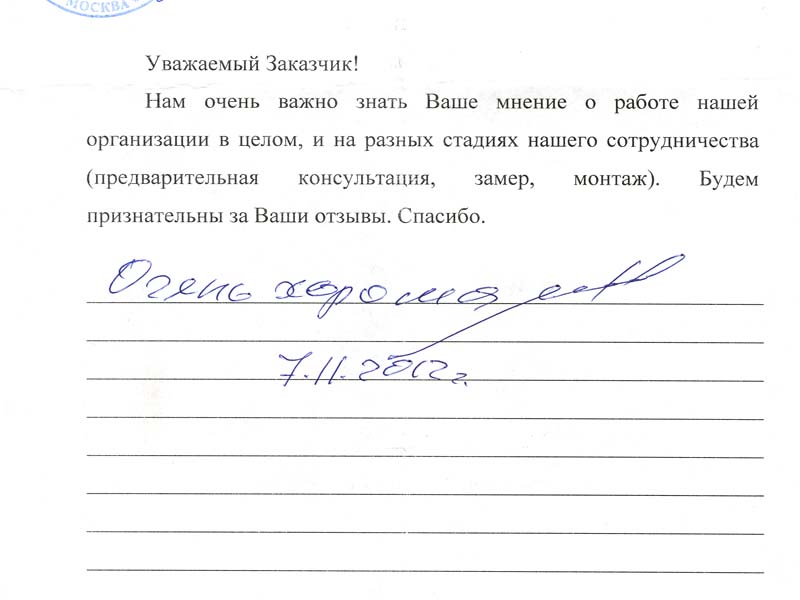 МОСКВА
Уважаемый Заказчик!
Нам очень важно знать Ваше мнение о работе нашей
организации в целом, и на разных стадиях нашего сотрудничества
(предварительная консультация, замер, монтаж). Будем
признательны за Ваши отзывы. Спасибо.
Очень хорошо
7.11.2012г.